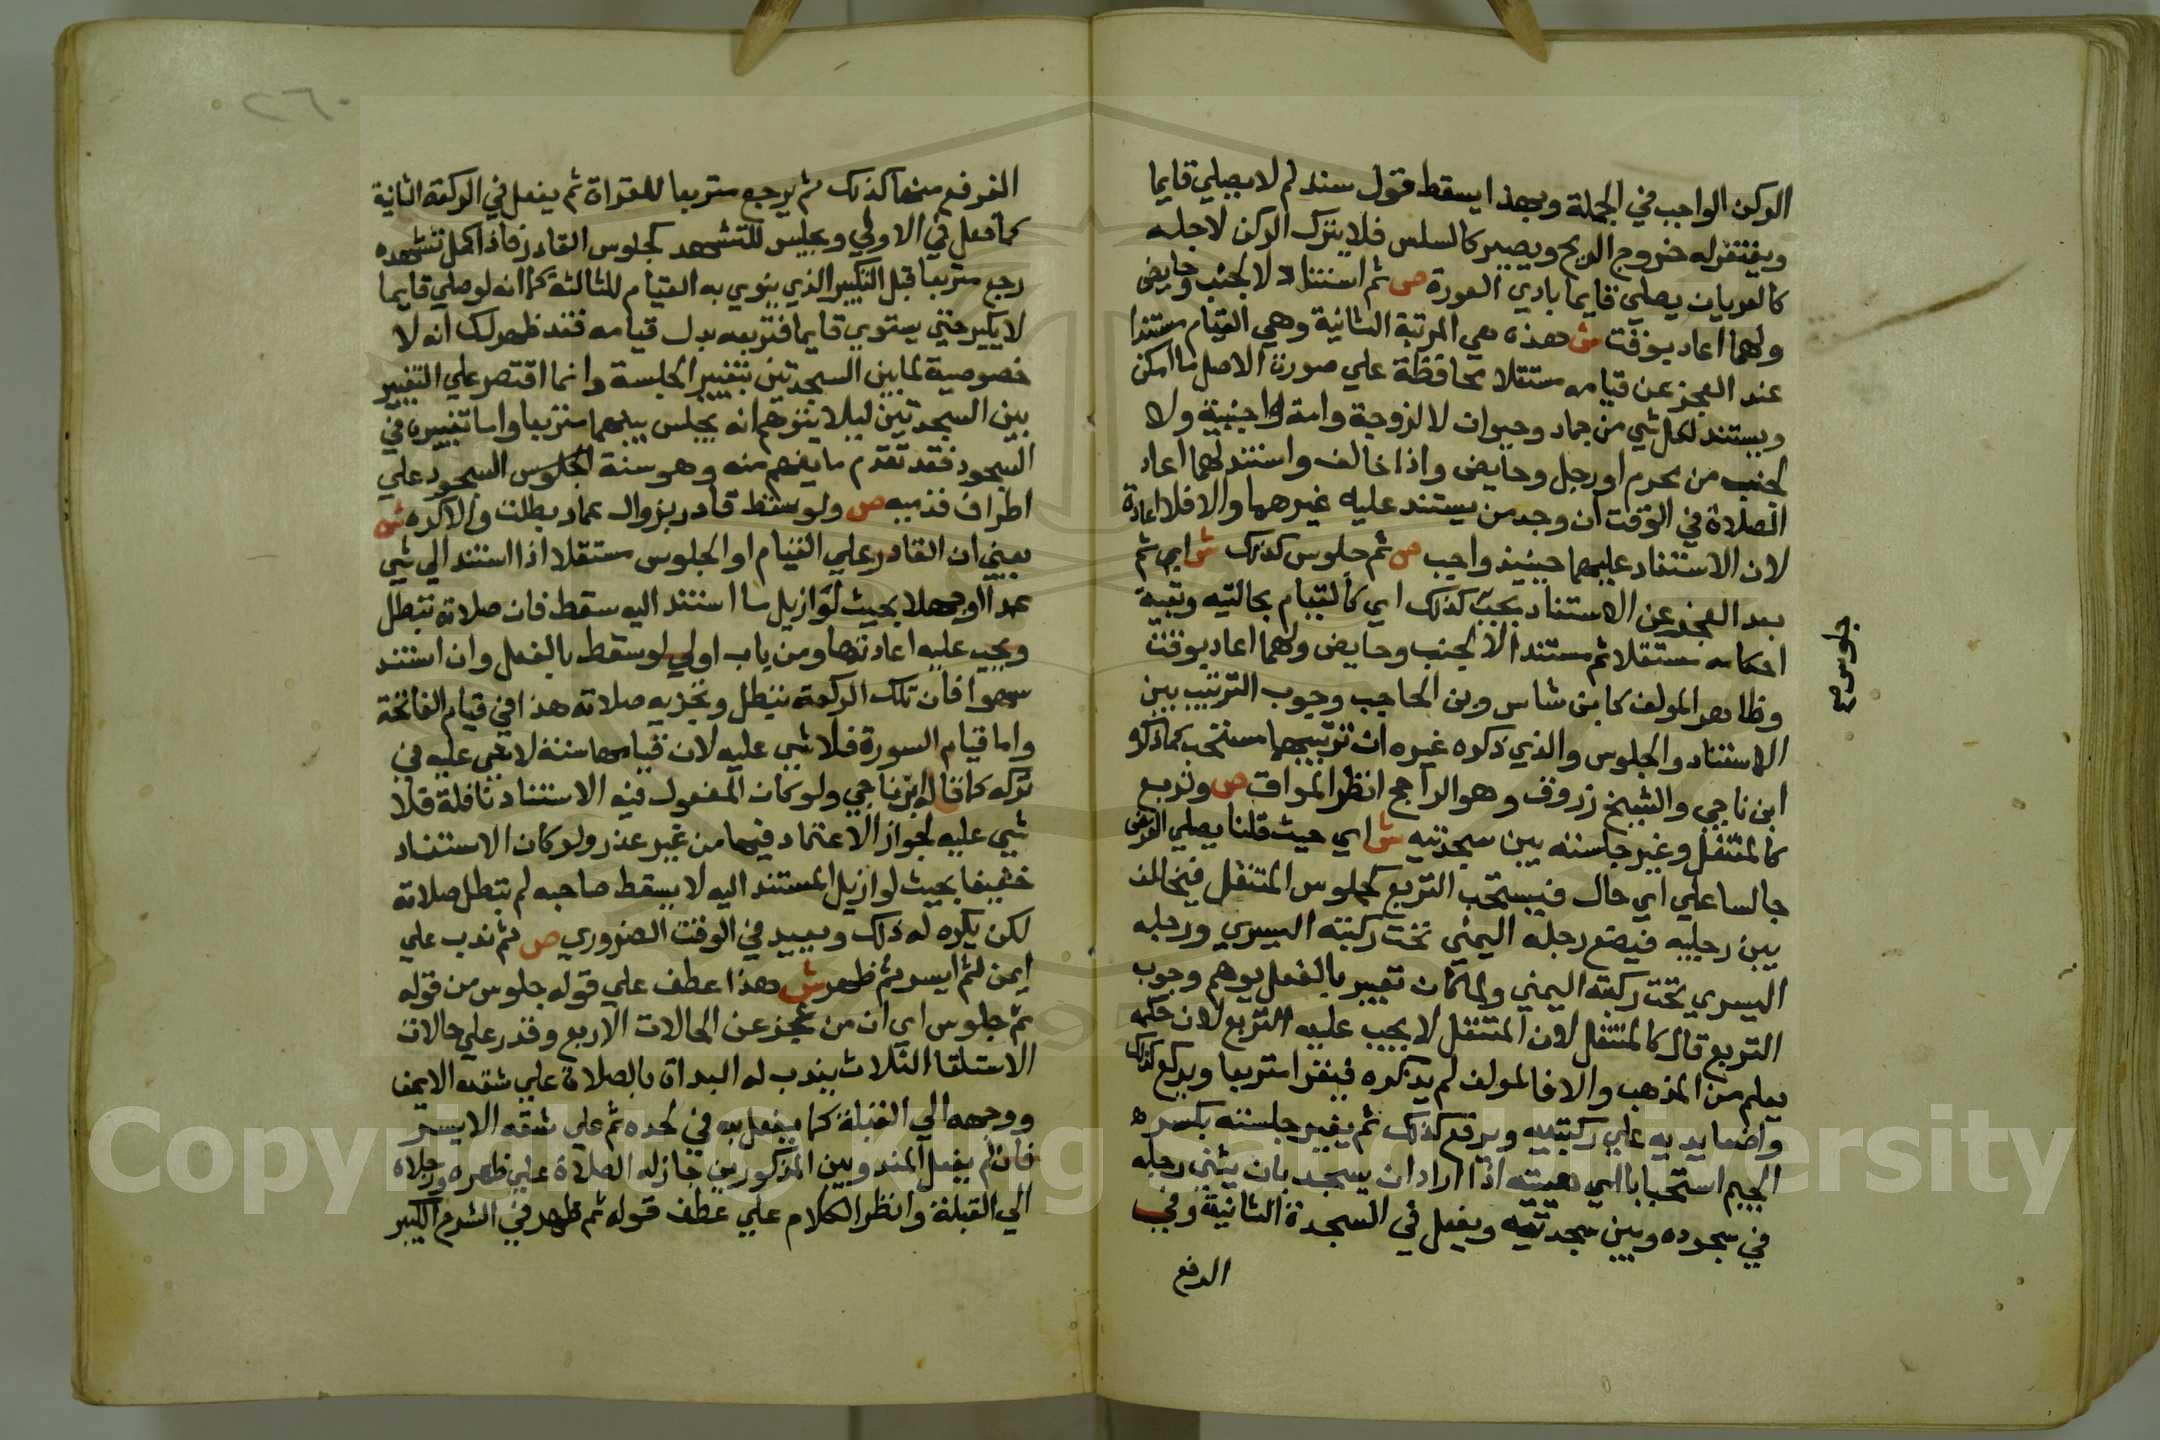 الركن الواجب في الجملة وبهذا يسقط قول سند لم لا يصلي قايما
ويغتفر له خروج الريح ويصير كالسلس فلا يترك الركن لاجله
كالعريان يصلي قايما بادي العورة ص ثم استناد لا لجنب وحايض
ولهما اعاد بوقت ش هذه هي المرتبة الثانية وهي القيام مستندا
عند العجز عن قيامه مستقلا محافظة علي صورة الاصل ما امكن
ويستند لكل شي من جماد وحيوان لا لزوجة وامة او اجنبية ولا
لجنب من محرم او رجل وحايض واذا خالف واستند لهما اعاد
الصلاة في الوقت ان وجد من يستند عليه غيرهما والا فلا اعادة
لان الاستناد عليهما حينيذ واجب ص ثم جلوس كذلك ش اي ثم
بعد العجز عن الاستناد يجب كذلك اي كالقيام بحالتيه وبقية
احكامه مستقلا ثم مستندا الا لجنب وحايض ولهما اعاد بوقت
جلوس صح
وظاهر المولف كابن شاس وبن الحاجب وجوب الترتيب بين
الاستناد والجلوس والذي ذكره غيره ان ترتيبهما مستحب كما ذكره
ابن ناجي والشيخ زروق وهو الراجح انظر المواق ص وتربع
كالمتنفل وغير جلسته بين سجدتيه ش اي حيث قلنا يصلي الفرض
جالسا علي اي حال فيستحب التربع كجلوس المتنفل فيخالف
بين رجليه فيضع رجله اليمني تحت ركبته اليسري ورجله
اليسري تحت ركبته اليمني ولما كان تعبيره بالفعل يوهم وجوب
التربع قال كالمتنفل لان المتنفل لا يجب عليه التربع لان حكمه
يعلم من المذهب والا فالمولف لم يذكره فيقرا متربعا ويركع كذلك
واضعا يديه علي ركبتيه ويرفع كذلك ثم يغير جلسته بكسر
الجيم استحبابا الي هييته اذا اراد ان يسجد بان يثني رجله
في سجوده وبين سجدتيه ويفعل في السجدة الثانية وفي
الرفع
٢٦٠
الفرفع منها كذلك ثم يرجع متربعا للقراة ثم يفعل في الركعة الثانية
كما فعل في الاولي ويجلس للتشهد كجلوس القادر فاذا اكمل تشهده
رجع متربعا قبل التكبير الذي ينوي به القيام للثالثة كما انه لو صلي قايما
لا يكبر حتي يستوي قايما فتربعه بدل قيامه فقد ظهر لك انه لا
خصوصية لما بين السجدتين بتغيير الجلسة وانما اقتصر علي التغيير
بين السجدتين ليلا يتوهم انه يجلس بينهما متربعا واما تغييره في
السجود فقد تقدم ما يفهم منه وهو سنة الجلوس السجود علي
اطراف قدميه ص ولو سقط قادر بزوال عماد بطلت والا كره ش
يعني ان القادر علي القيام او الجلوس مستقلا اذا استند الي شي
عمدا او جهلا بحيث لو ازيل ما استند اليه سقط فان صلاته تبطل
ويجب عليه اعادتها ومن باب اولي لو سقط بالفعل وان استند
سهوا فان تلك الركعة تبطل وتجزيه صلاته هذا في قيام الفاتحة
واما قيام السورة فلا شي عليه لان قيامها سنة لا شي عليه في
تركه كما قاله ابن ناجي ولو كان المفعول فيه الاستناد نافلة فلا
شي عليه لجواز الاعتماد فيها من غير عذر ولو كان الاستناد
خفيفا بحيث لو ازيل المستند اليه لا يسقط صاحبه لم تبطل صلاته
لكن يكره له ذلك ويعيد في الوقت الضروري ص ثم ندب علي
ايمن ثم ايسر ثم ظهر ش هذا عطف علي قوله جلوس من قوله
ثم جلوس اي ان من عجز عن الحالات الاربع وقدر علي حالات
الاستلقا الثلاث يندب له البداة بالصلاة علي شقه الايمن
ووجهه الي القبلة كما يفعل به في لحده ثم علي شقه الايسر
فان لم يفعل المندوبين المذكورين جاز له الصلاة علي ظهره ورجلاه
الي القبلة وانظر الكلام علي عطف قوله ثم ظهر في الشرح الكبير